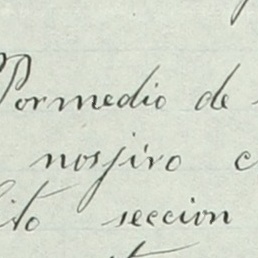 Pormedio de
nosjiro c
ito seccion